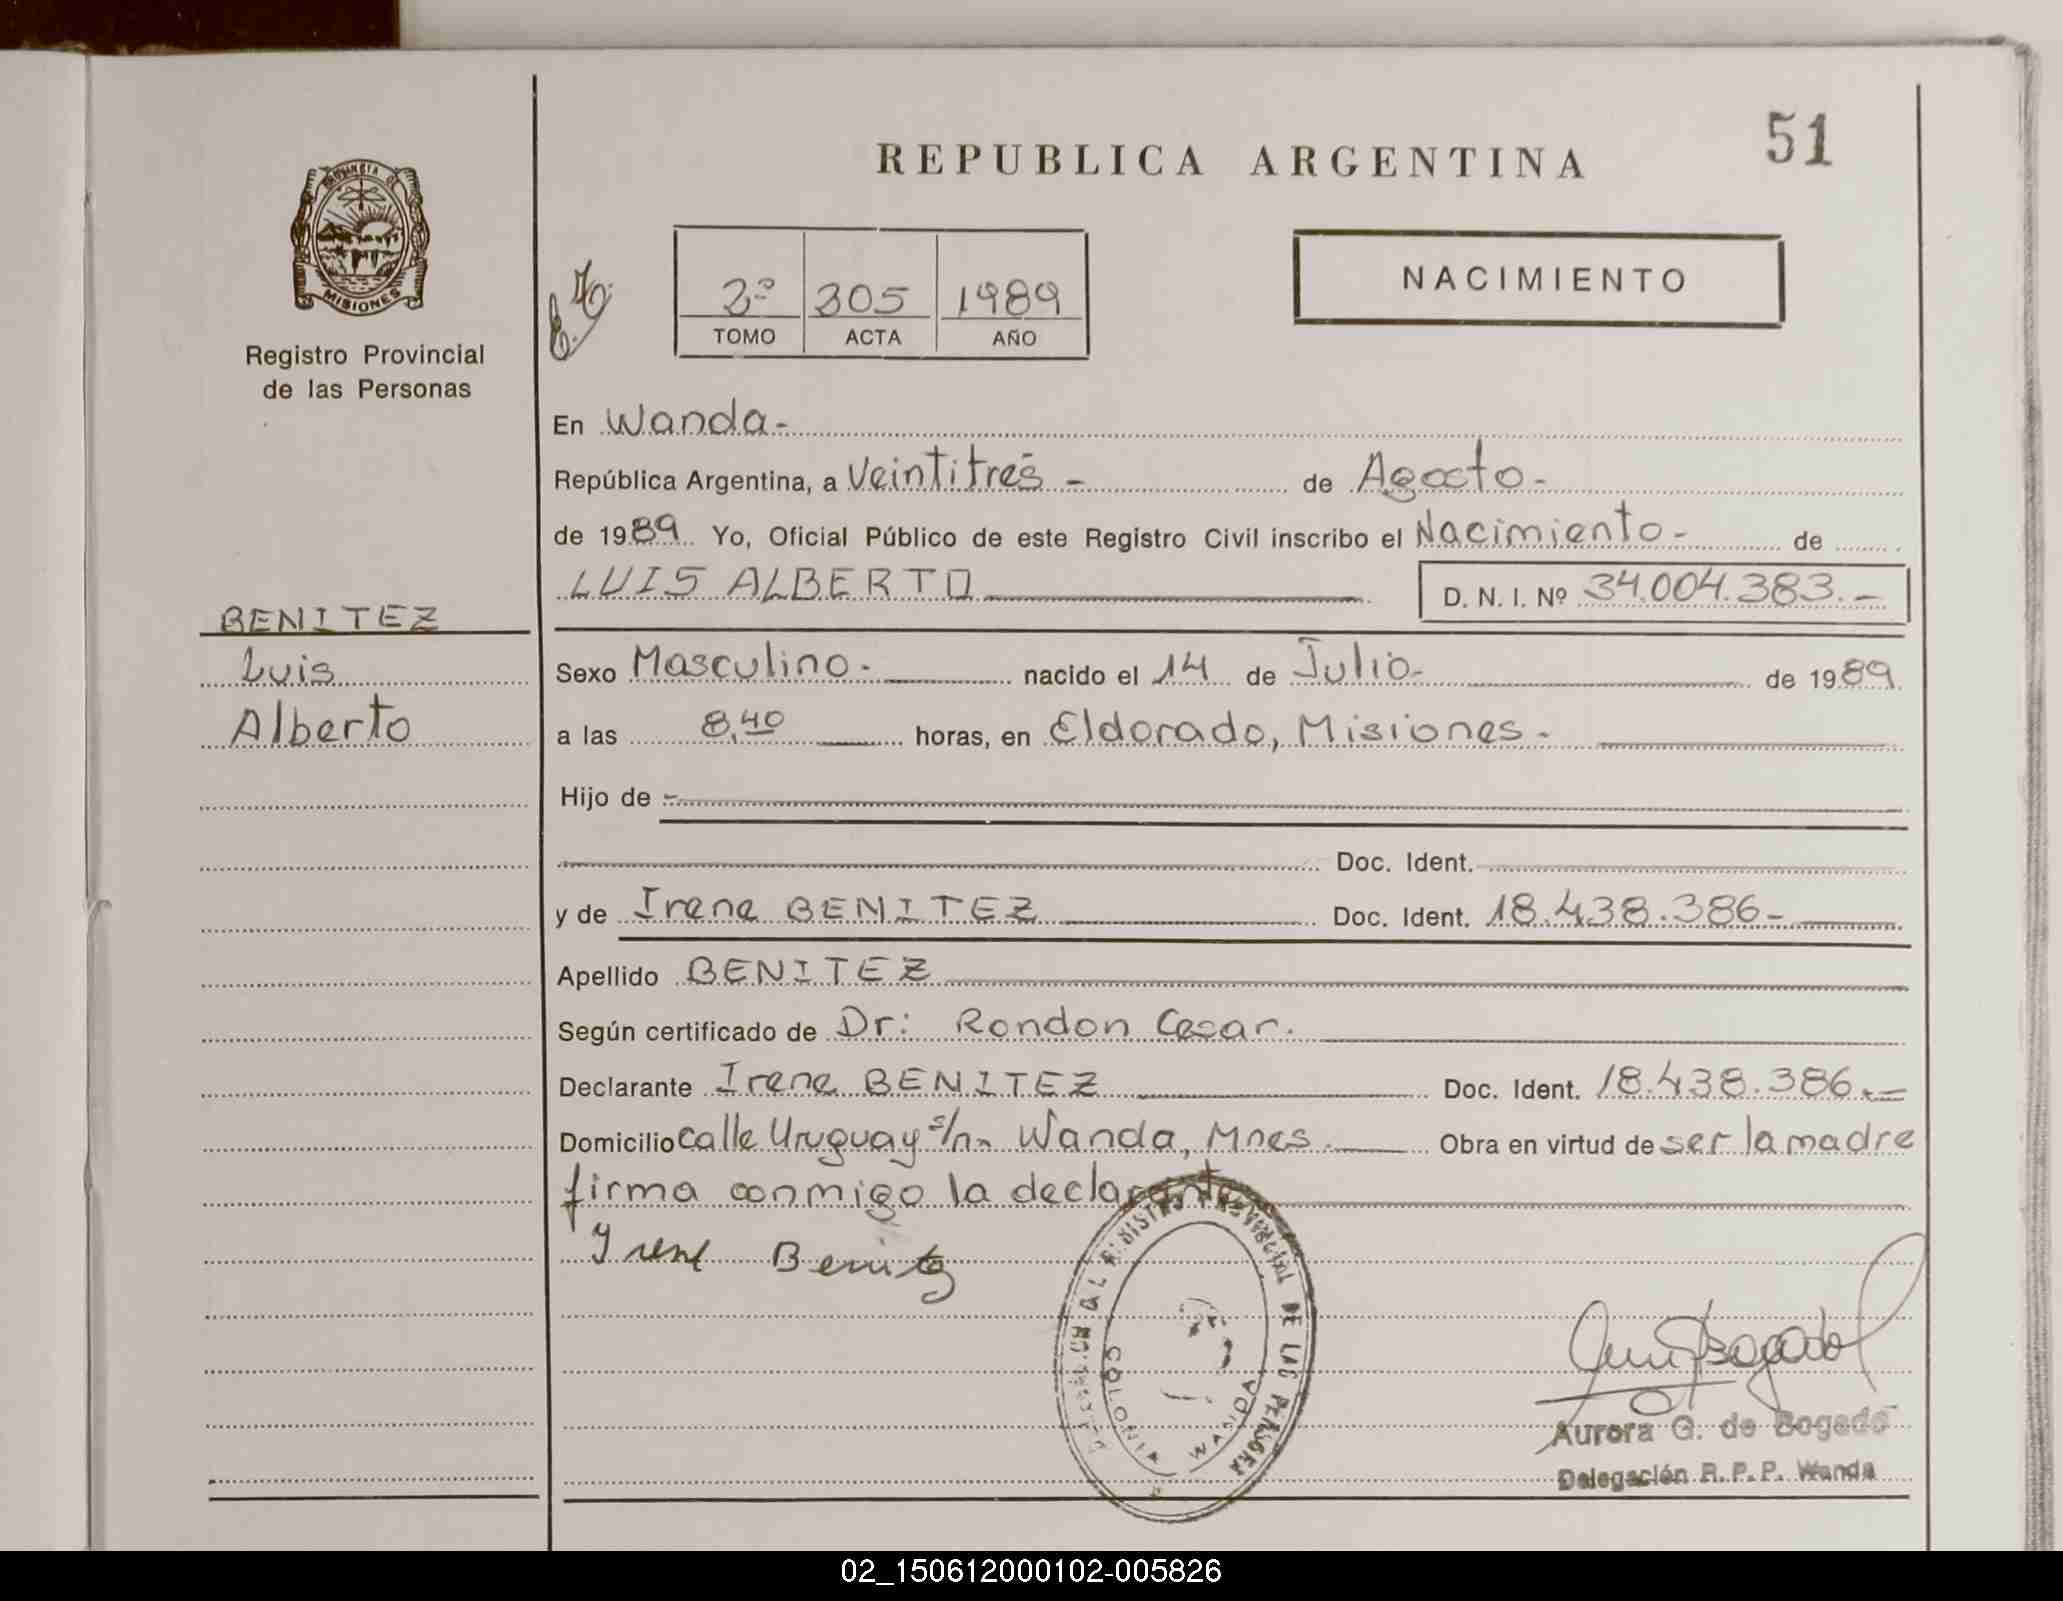 51
REPUBLICA ARGENTINA
PROVINCIA DE
MISIONES
Registro Provincial
de las Personas
2º 305 1989
TOMO ACTA AÑO
NACIMIENTO
En Wanda.-
República Argentina, a Veintitrés - de Agosto.-
de 1989 Yo, Oficial Público de este Registro Civil inscribo el Nacimiento.- de
LUIS ALBERTO D. N. I. Nº 34.004.383.-
BENITEZ
Luis
Alberto
Sexo Masculino.- nacido el 14 de Julio.- de 1989
a las 8,40 horas, en Eldorado, Misiones.-
Hijo de -
Doc. Ident.
y de Irene BENITEZ Doc. Ident. 18.438.386.-
Apellido BENITEZ
Según certificado de Dr: Rondon Cesar.
Declarante Irene BENITEZ Doc. Ident. 18.438.386.-
Domicilio calle Uruguay s/n- Wanda, Mnes. Obra en virtud de ser la madre
firma conmigo la declarante
Irene Benitez
COLONIA WANDA
Aurora G. de Bogado
Delegación R. P. P. Wanda
02_150612000102-005826